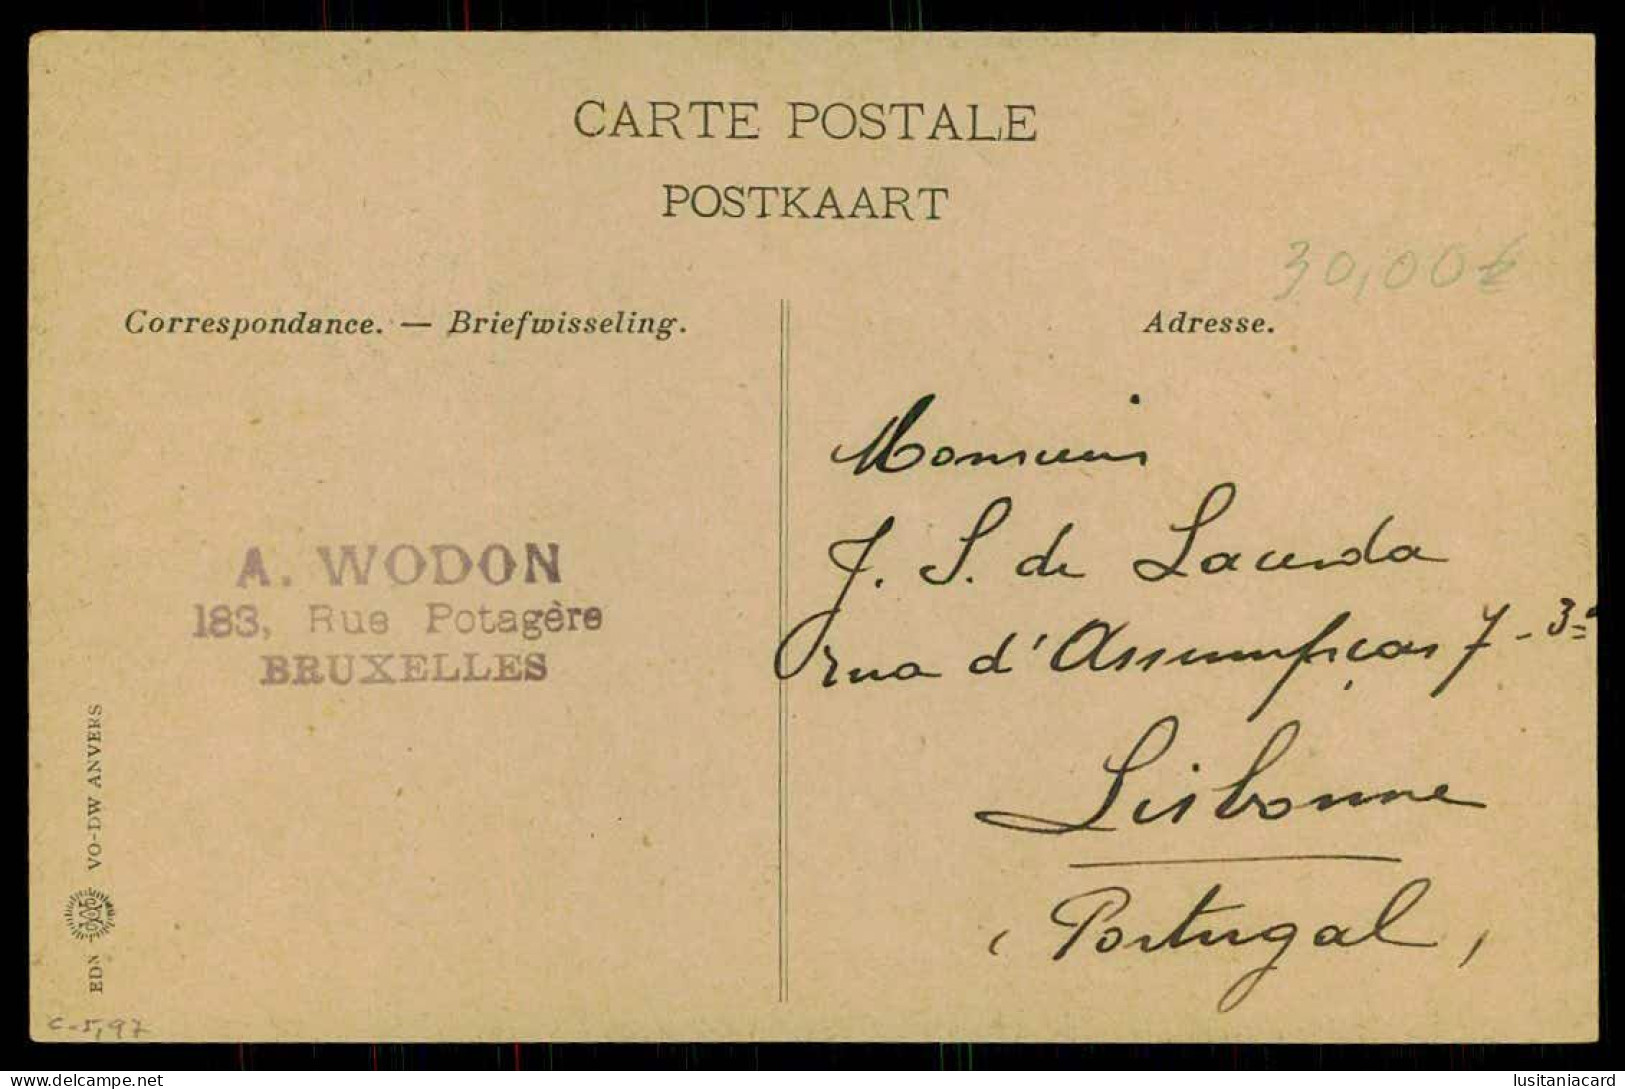 CARTE POSTALE
POSTKAART
30,00€
Correspondance. — Briefwisseling.
Adresse.
Monsieur
J. S. de Lacerda
rua d'Assumpçao 7-3º
Lisbonne
(Portugal)
A. WODON
183, Rue Potagère
BRUXELLES
EDN VO-DW ANVERS
c-5,97
lusitaniacard